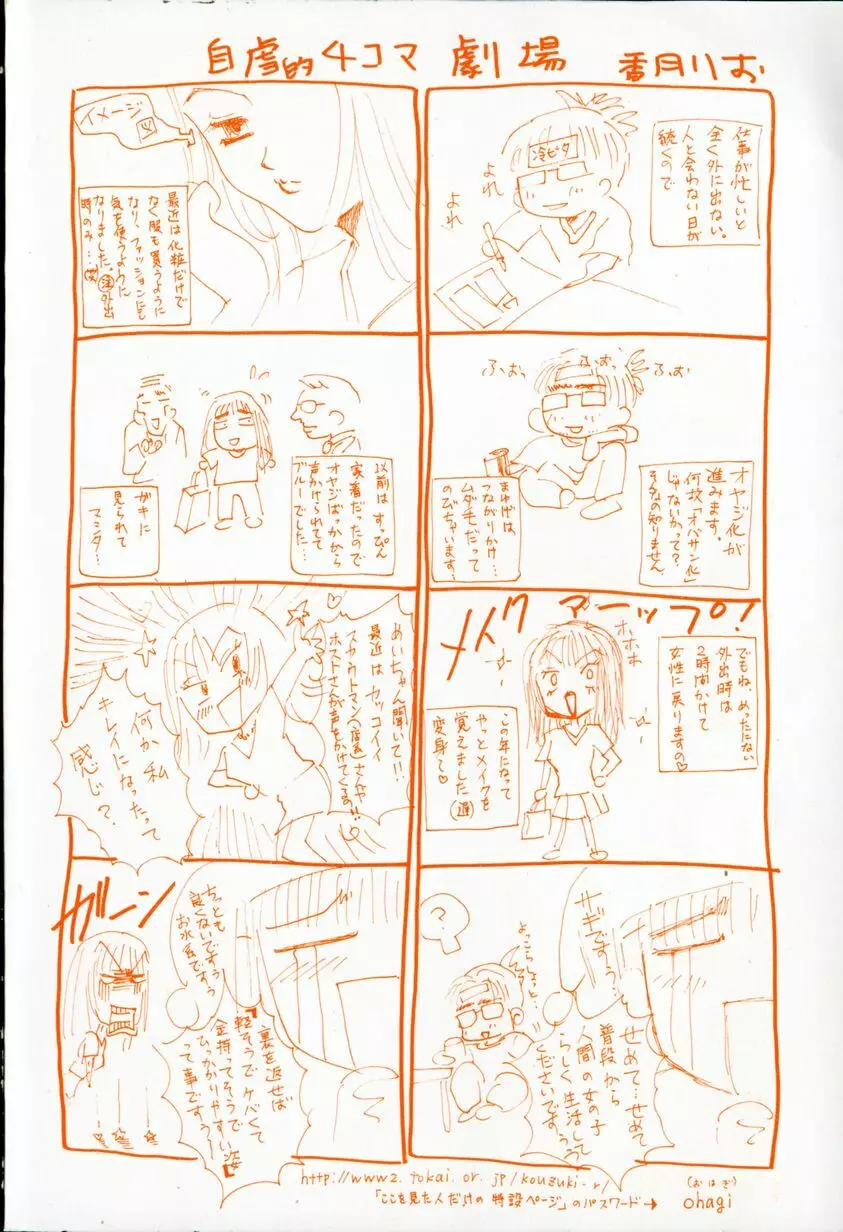 自虐的4コマ 劇場 香月りお
仕事が忙しいと
全く外に出ない。
人と会わない日が
続くので
冷ピタ
よれ
よれ
ふおっ
ふおっ
ふぉ
オヤジ化が
進みます。
何故「オバサン化」
じゃないかって？
そんなの知りません
まゆげは、
つながりかけ…
ムダ毛だって
のびちゃいます…
メイクアーップ！
でもね、めったにない
外出時は
2時間かけて
女性に戻りますの♡
ホホホ
この年になって
やっとメイクを
覚えました(遅)
変身～♡
サギですぅ…
せめて…せめて
普段から
人間の女の子
らしく生活して
くださいですぅぅ
？
よっこらしょっと…
イメージ
図
最近は化粧だけで
なく服も買うように
なり、ファッションにも
気を使うように
なりました。注外出
時のみ…(笑)
以前は すっぴん
家着だったので
オヤジばっかから
声かけられてて
ブルーでした…
ガキに
見られて
マシタ…
めいちゃん聞いて!!
最近は カッコイイ
スカウトマン(風)さんや
ホストさんが声をかけてくるの!!
何か私
キレイになったって
感じ？
ガーン
ちっとも
良くないですぅ
お水系ですぅ
裏を返せば
『軽そうで ケバくて
金持ってそうで
ひっかかりやすい姿』
って事ですぅ～
http://www2.tokai.or.jp/kouzuki-r/
「ここを見た人だけの特設ページ」のパスワード→
(おはぎ)
ohagi